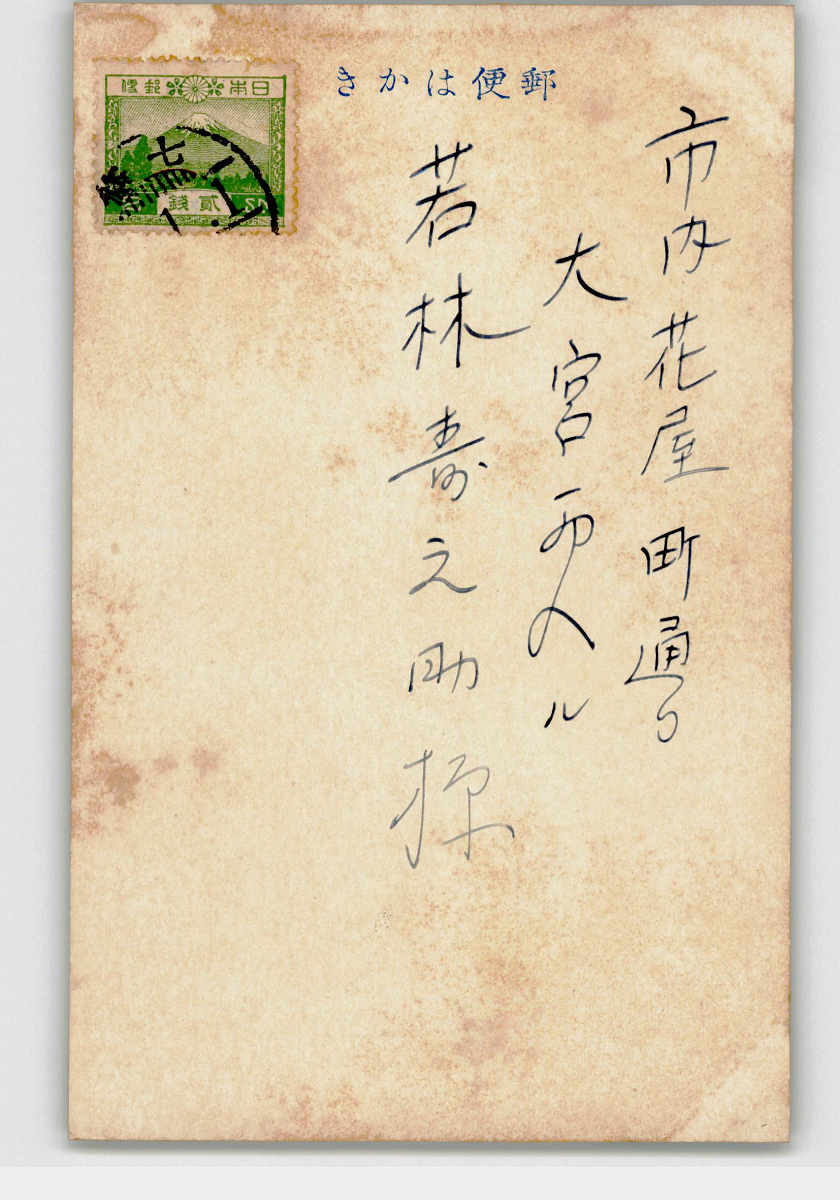 郵便はかき
日本郵便
貳錢
市内花屋町通り
大宮西入ル
若林寿之助様